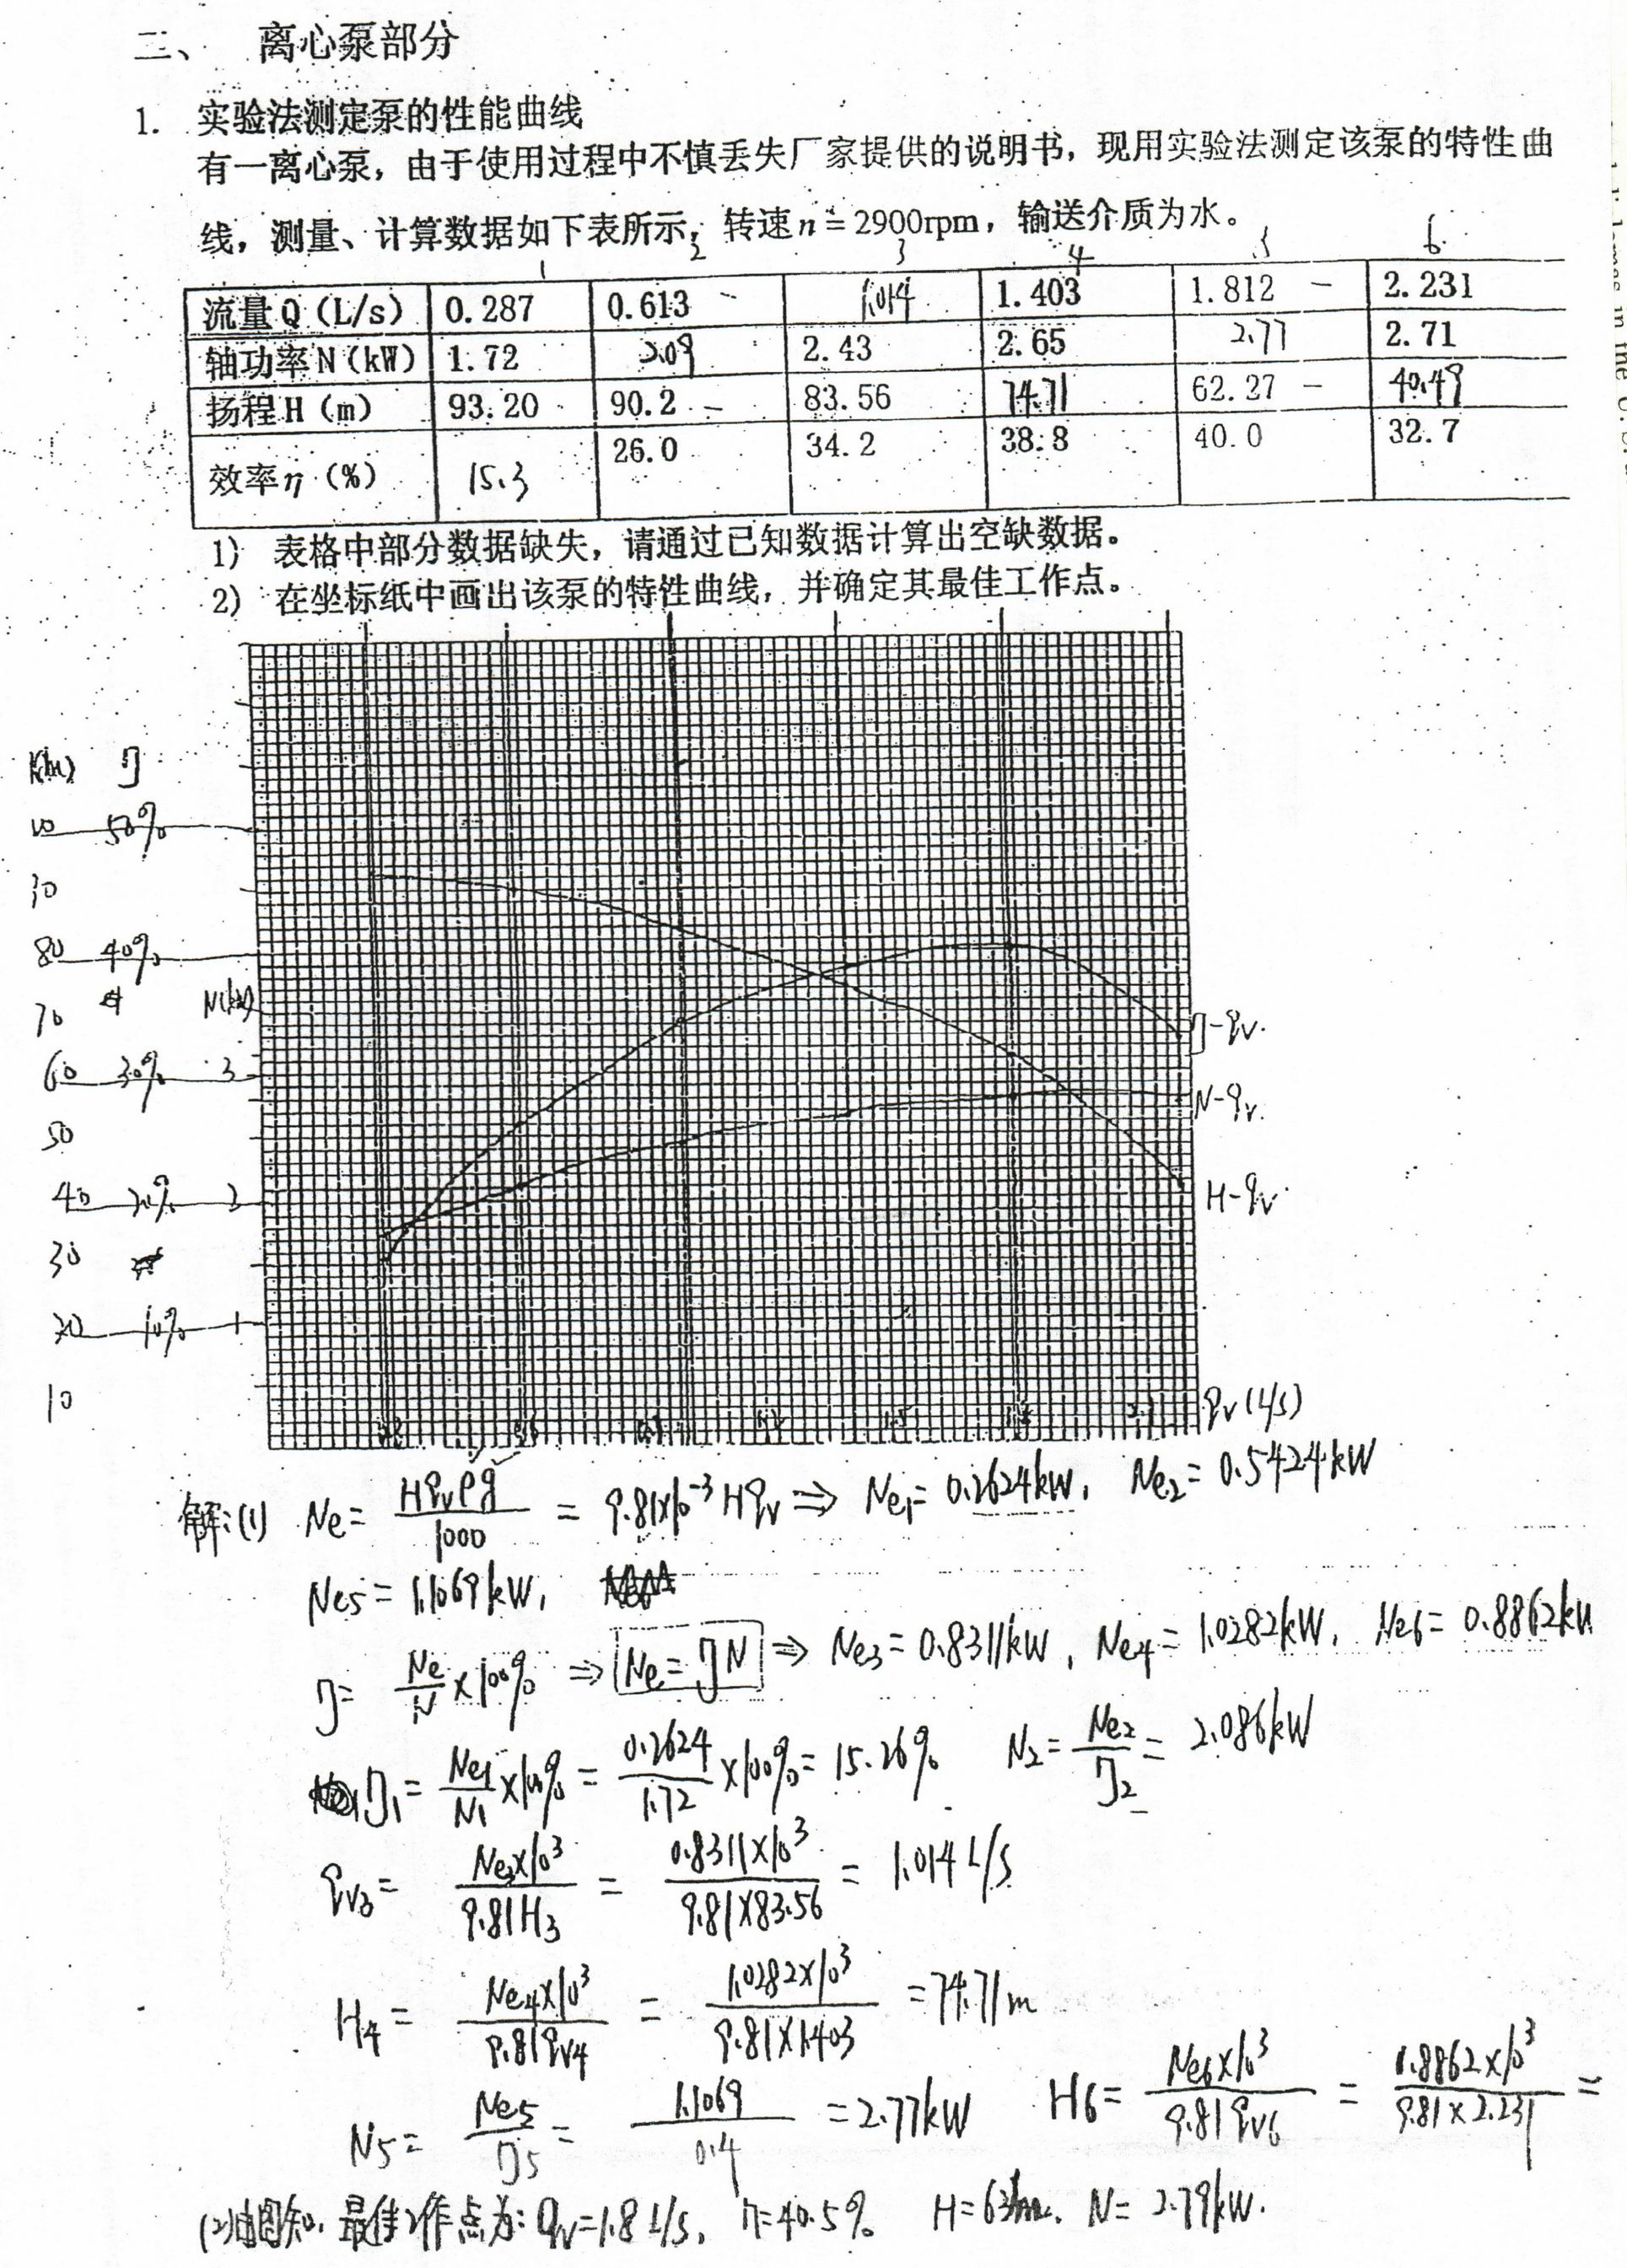 二、 离心泵部分
1. 实验法测定泵的性能曲线
有一离心泵，由于使用过程中不慎丢失厂家提供的说明书，现用实验法测定该泵的特性曲
线，测量、计算数据如下表所示，转速n=2900rpm，输送介质为水。
1 2 3 4 5 6
流量Q（L/s） 0.287 0.613 1.014 1.403 1.812 2.231
轴功率N（kW） 1.72 2.09 2.43 2.65 2.77 2.71
扬程H（m） 93.20 90.2 83.56 74.71 62.27 40.49
效率η（%） 15.3 26.0 34.2 38.8 40.0 32.7
1） 表格中部分数据缺失，请通过已知数据计算出空缺数据。
2） 在坐标纸中画出该泵的特性曲线，并确定其最佳工作点。
H(m) η
50%
80 40%
70 N(kW)
60 30% 3
50
40 20% 2
30
20 10% 1
10
η-qv
N-qv
H-qv
qv(L/s)
解:(1) Ne= Hqvρg/1000 = 9.81×10⁻³Hqv ⇒ Ne1= 0.2624kW, Ne2= 0.5424kW
Ne5= 1.1069kW,
η= Ne/N ×100% ⇒ Ne=ηN ⇒ Ne3= 0.8311kW, Ne4= 1.0282kW, Ne6= 0.8862kW
η1= Ne1/N1 ×100% = 0.2624/1.72 ×100%= 15.26% N2= Ne2/η2 = 2.086kW
qv3= Ne3×10³/9.81H3 = 0.8311×10³/9.81×83.56 = 1.014L/s
H4= Ne4×10³/9.81qv4 = 1.0282×10³/9.81×1.403 =74.71m
N5= Ne5/η5 = 1.1069/0.4 =2.77kW H6= Ne6×10³/9.81qv6 = 0.8862×10³/9.81×2.231 =
(2)由图知, 最佳工作点为: qv=1.8L/s, η=40.5% H=63m, N= 2.79kW.